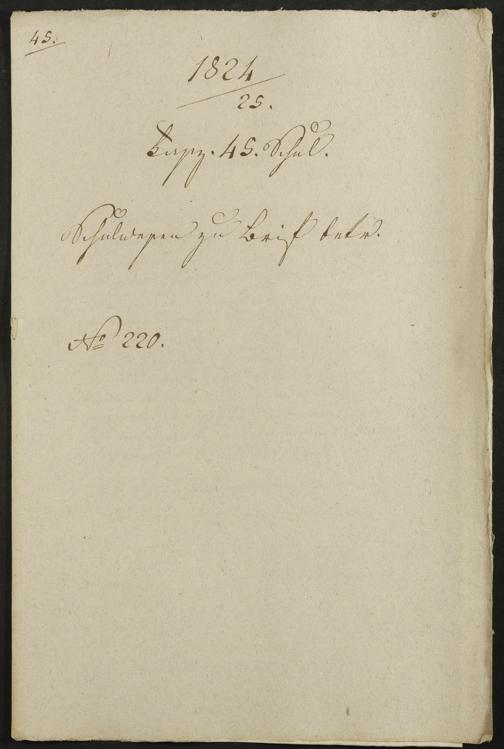 45.
1824
25.
Kapz. 45. Schul.
Schulwesen zu Bris betr.
No 220.